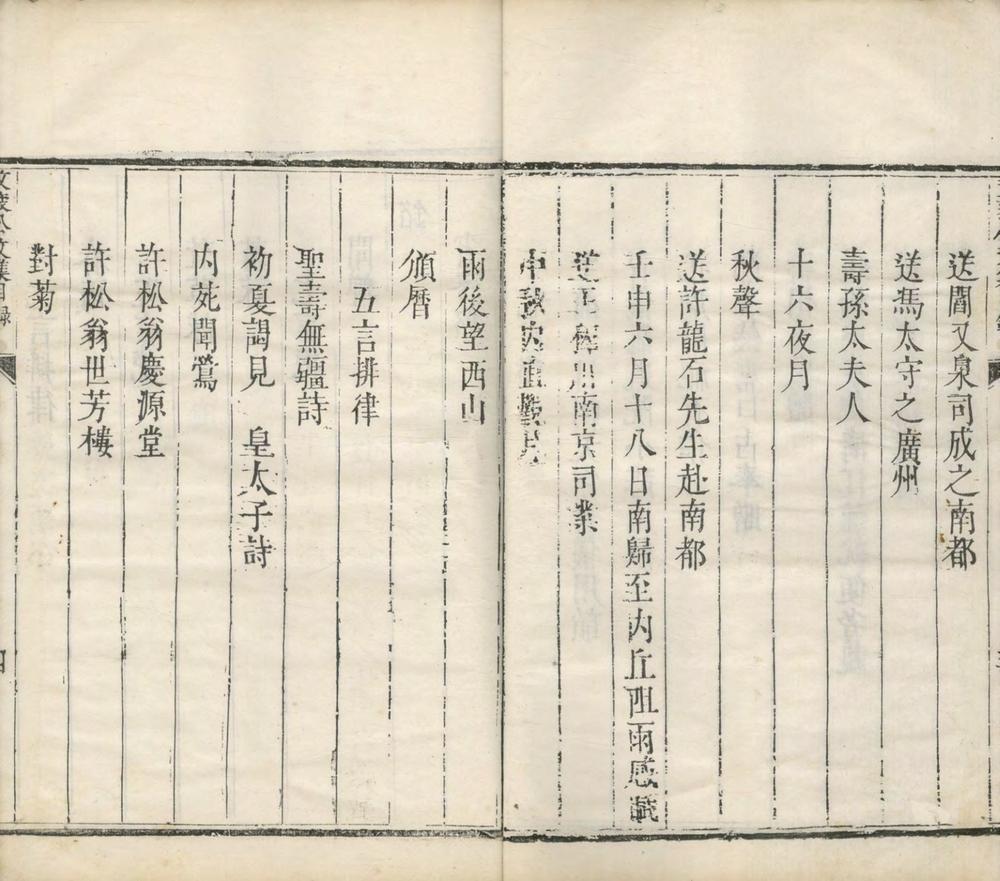 送閻又泉司成之南都
送馬太守之廣州
壽孫太夫人
十六夜月
秋聲
送許龍石先生赴南都
壬申六月十八日南歸至内丘阻雨感
送王 南京司業
中秋
雨後望西山
頒曆
五言排律
聖壽無疆詩
初夏謁見 皇太子詩
内苑聞鶯
許松翁慶源堂
許松翁世芳樓
對菊
公文集目録